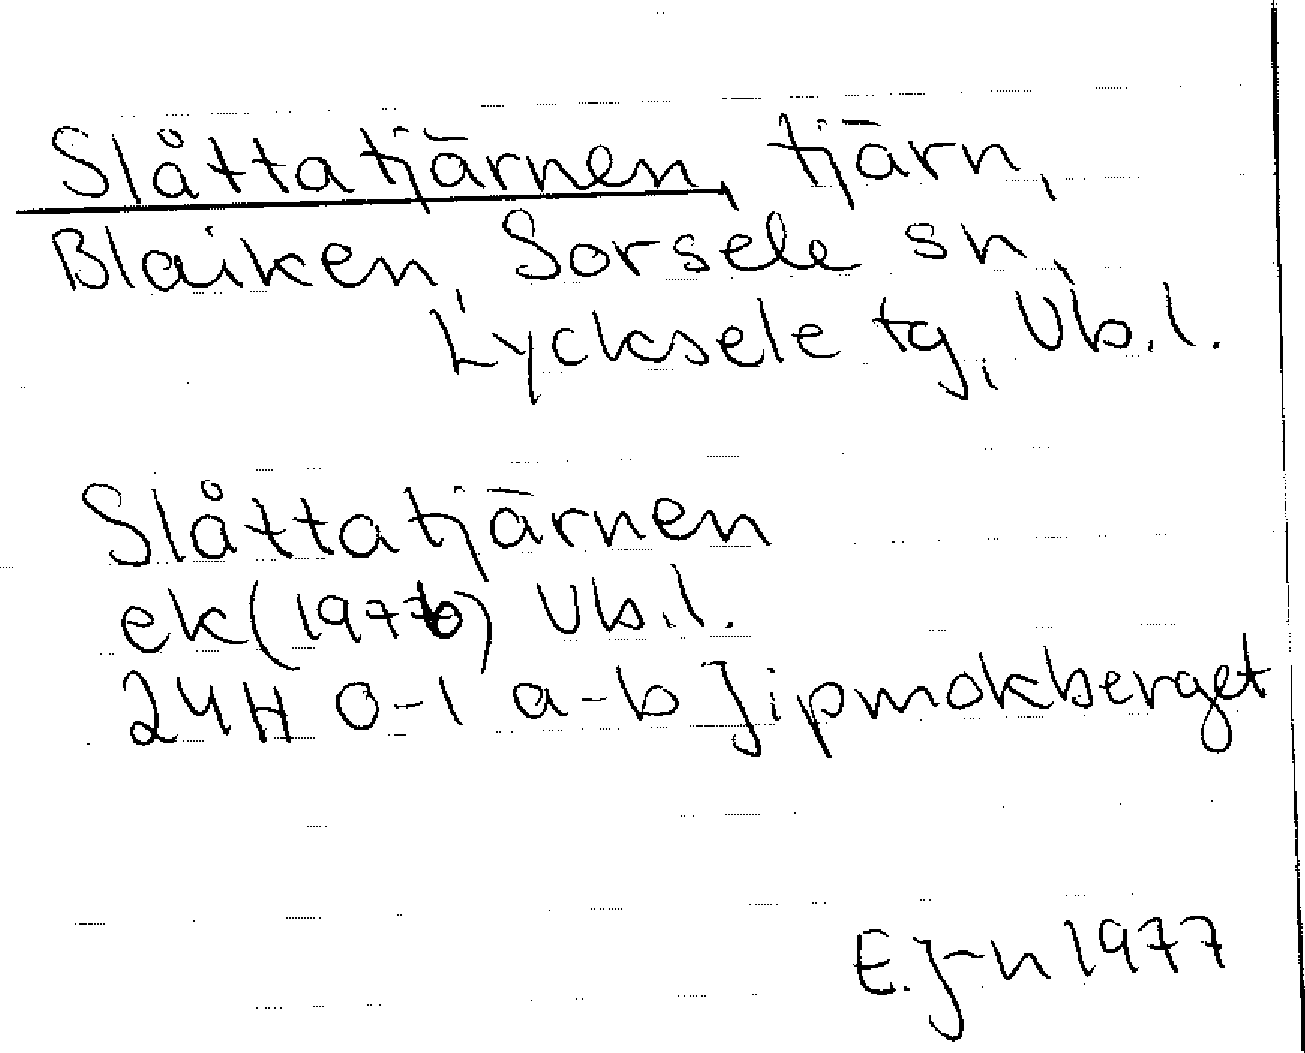 Slåttatjärnen, tjärn,
Blaiken, Sorsele sn,
Lycksele tg, Vb.l.
Slåttatjärnen
ek (1976) Vb.l.
24H 0-1 a-b Jipmokberget
E. J-n 1977